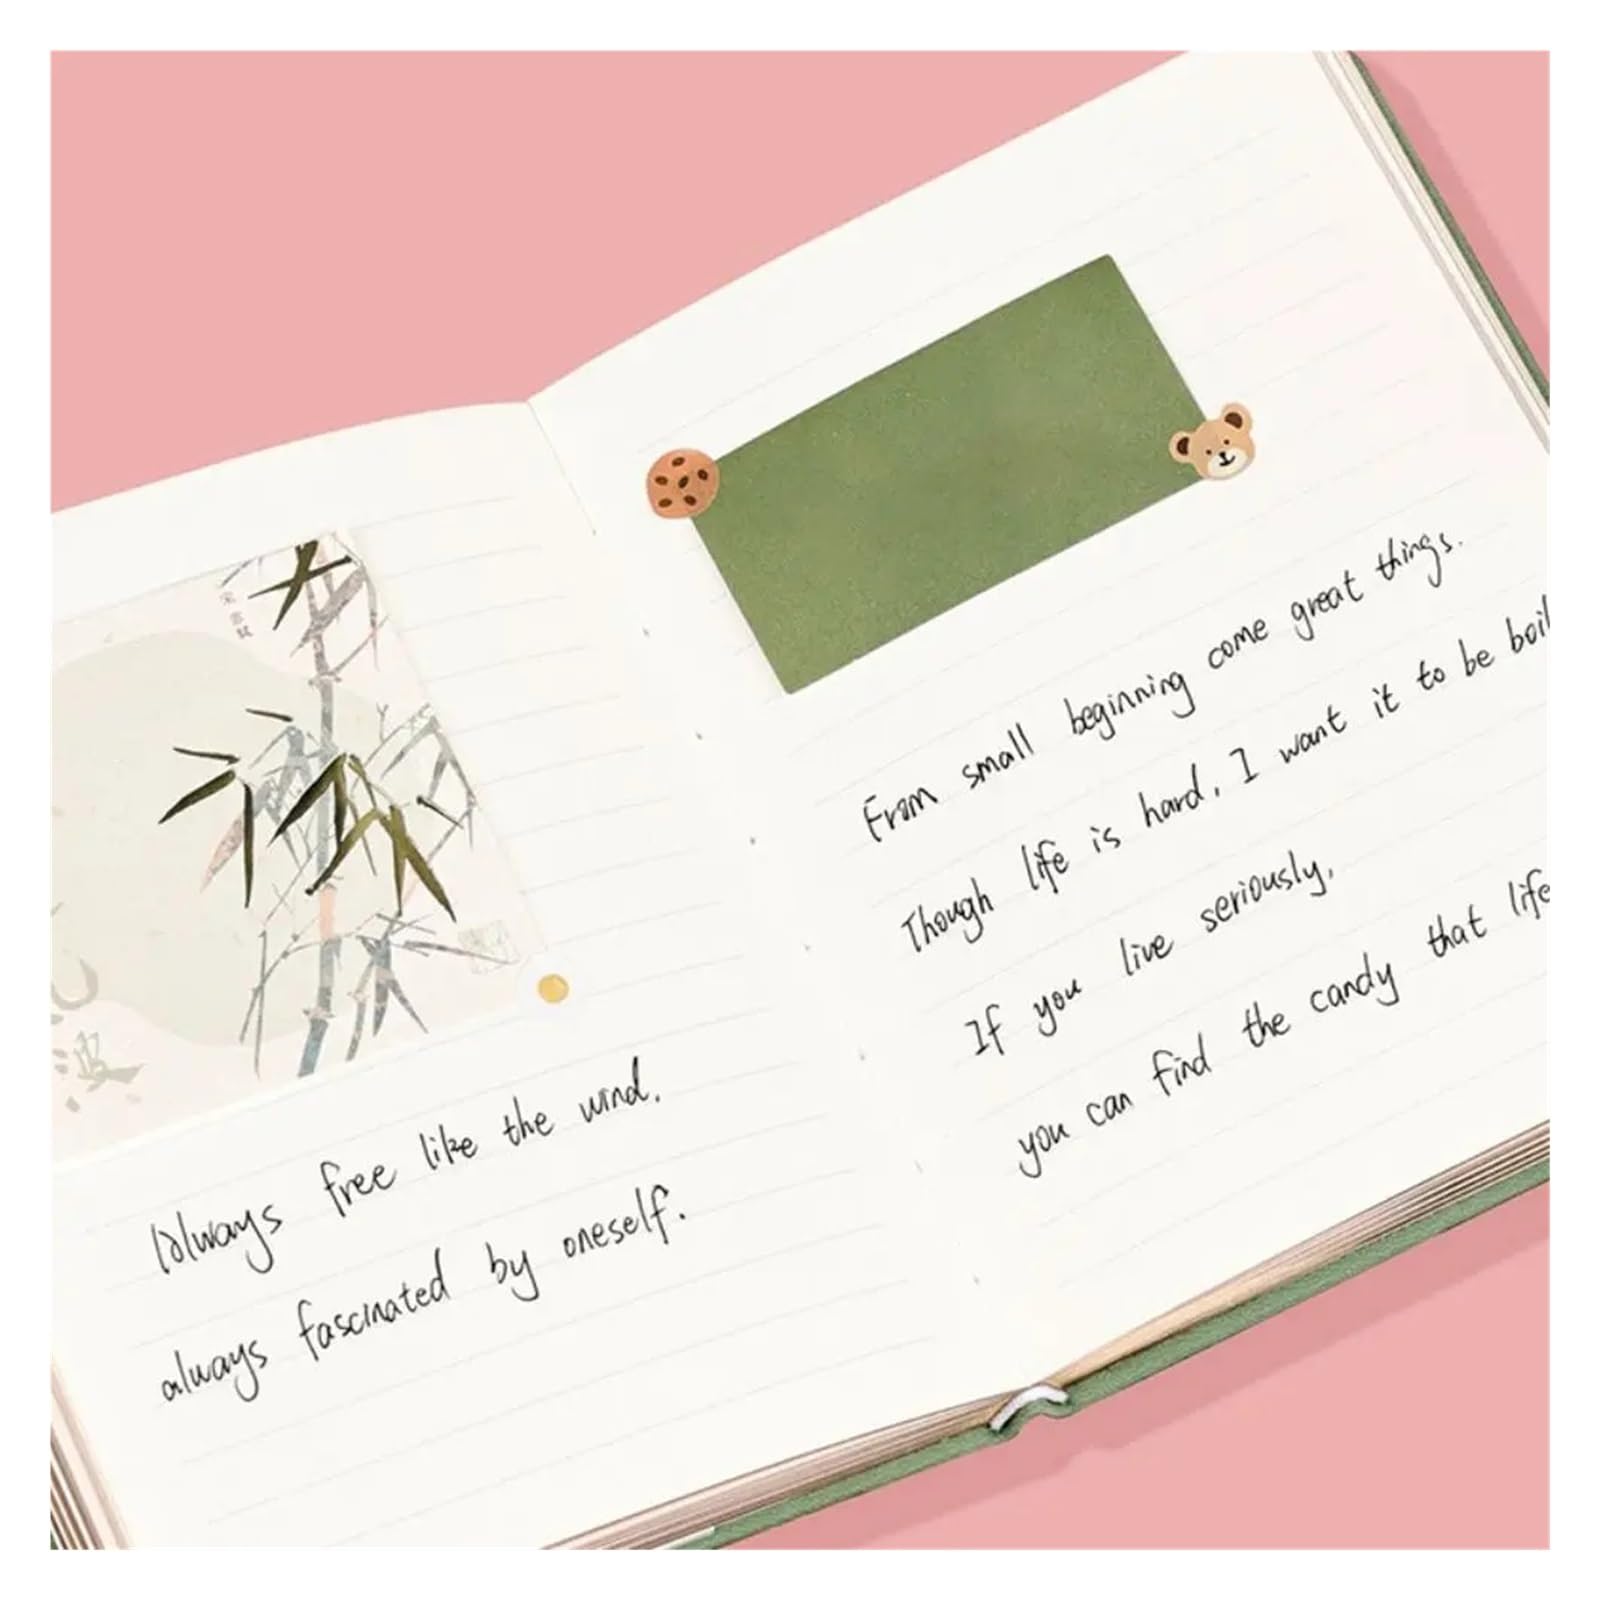 Always free like the wind.
always fascinated by oneself.
From small beginning come great things.
Though life is hard, I want it to be boil
If you live seriously,
you can find the candy that life